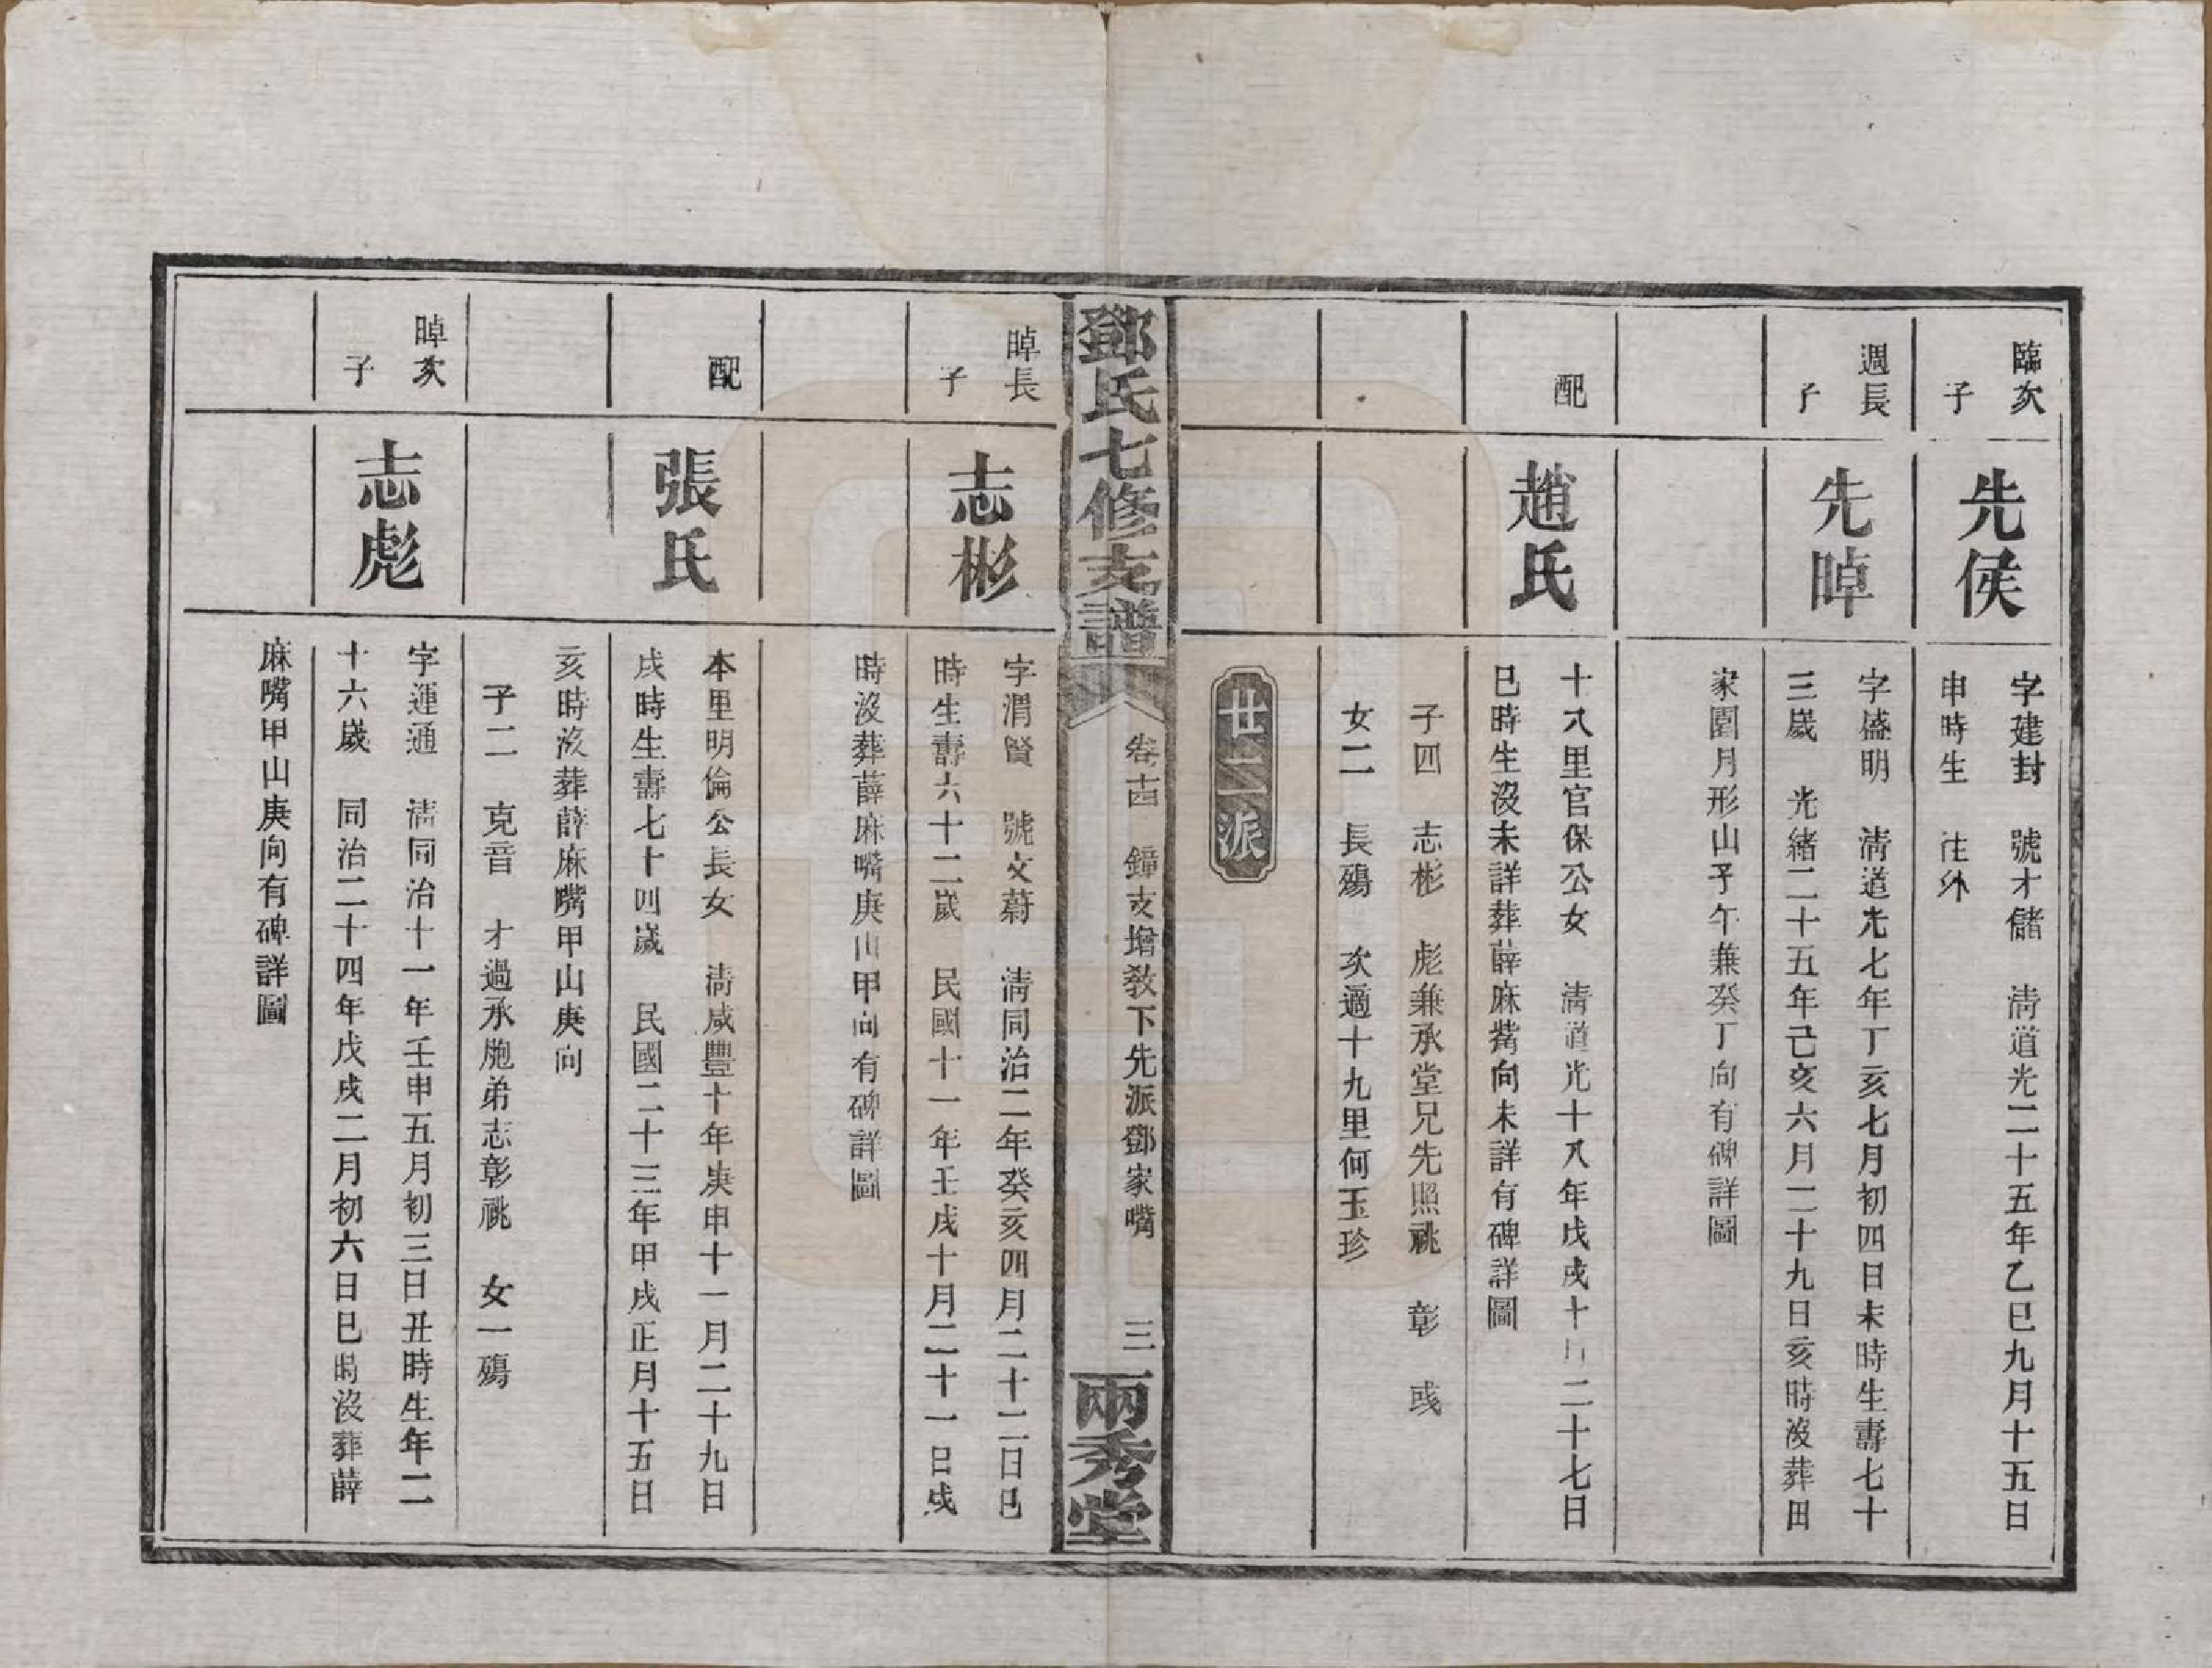 臨次
子
先侯
字建封　號才儲　淸道光二十五年乙巳九月十五日
申時生　往外
週長
子
先晫
字盛明　淸道光七年丁亥七月初四日未時生壽七十
三歲　光緖二十五年己亥六月二十九日亥時沒葬田
家園月形山子午兼癸丁向有碑詳圖
配
趙氏
十八里官保公女　淸道光十八年戊戌十月二十七日
巳時生沒未詳葬薛麻嘴向未詳有碑詳圖
子四　志彬　彪兼承堂兄先照祧　彰　彧
女二　長殤　次適十九里何玉珍
廿二派
鄧氏七修支譜
卷十四　鐘支增敎下先派鄧家嘴　三
兩秀堂
晫長
子
志彬
字渭賢　號文蔚　淸同治二年癸亥四月二十二日巳
時生壽六十二歲　民國十一年壬戌十月二十一日戌
時沒葬薛麻嘴庚山甲向有碑詳圖
配
張氏
本里明倫公長女　淸咸豐十年庚申十一月二十九日
戌時生壽七十四歲　民國二十三年甲戌正月十五日
亥時沒葬薛麻嘴甲山庚向
子二　克音　才過承胞弟志彰祧　女一殤
晫次
子
志彪
字運通　淸同治十一年壬申五月初三日丑時生年二
十六歲　同治二十四年戊戌二月初六日巳時沒葬薛
麻嘴甲山庚向有碑詳圖